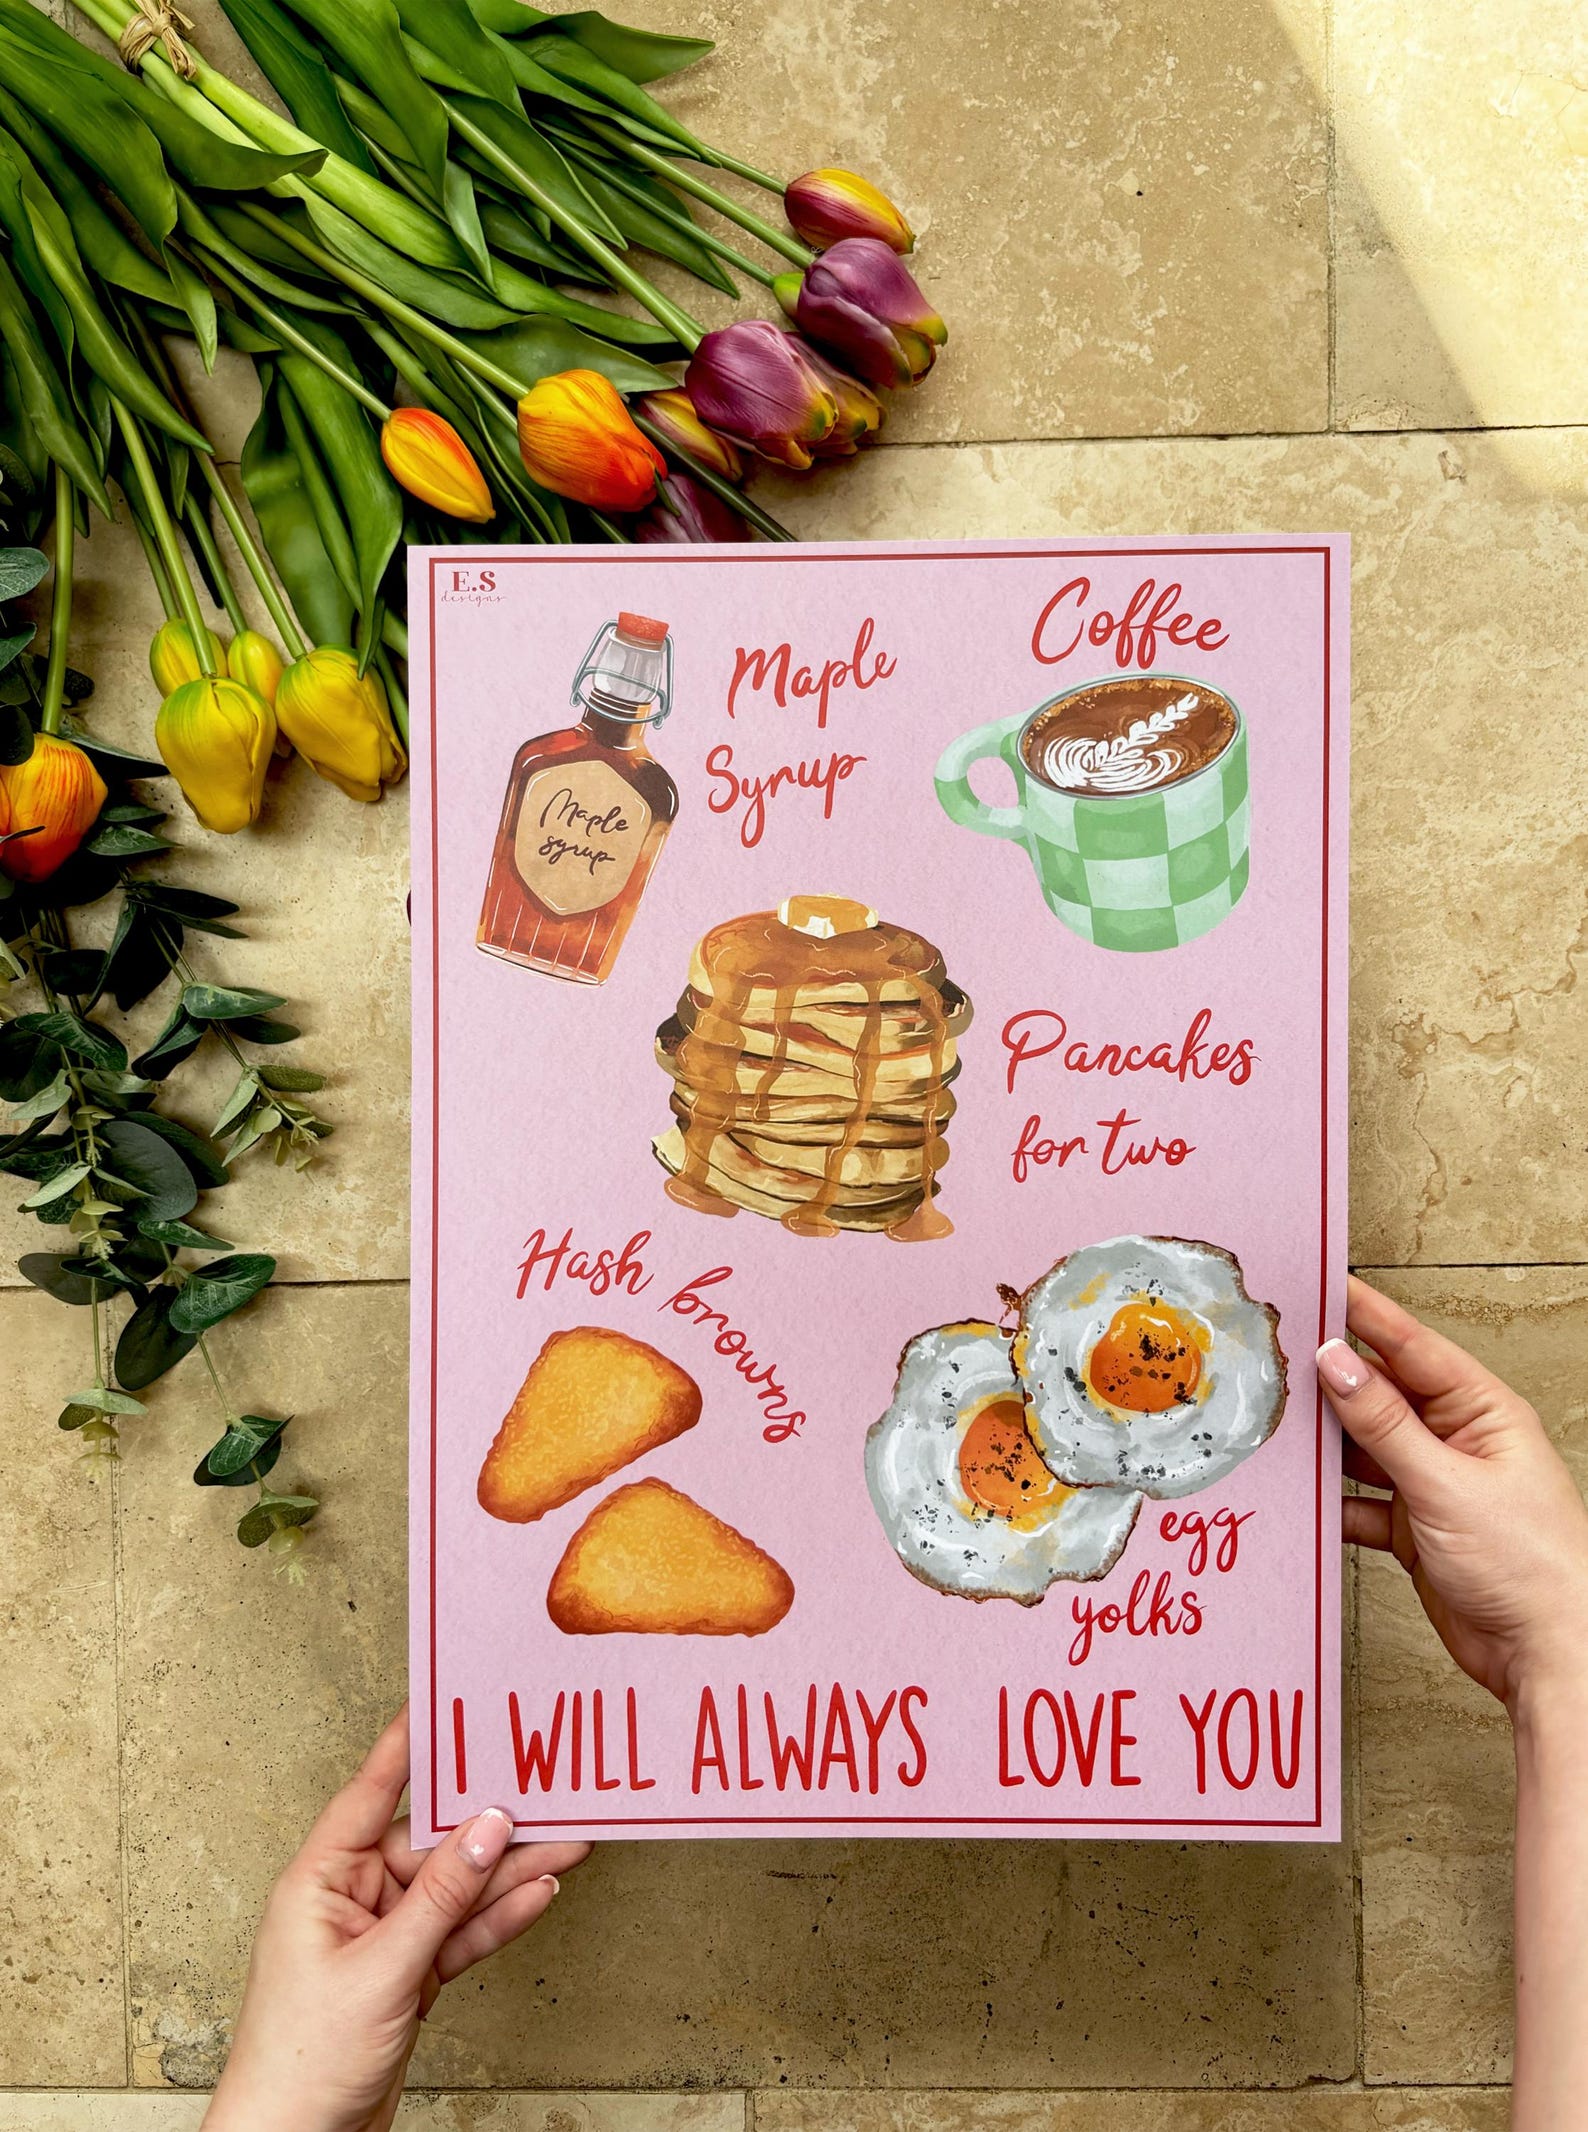 E.S
designs
Maple
Syrup
Maple
syrup
Coffee
Pancakes
for two
Hash browns
egg
yolks
I WILL ALWAYS LOVE YOU